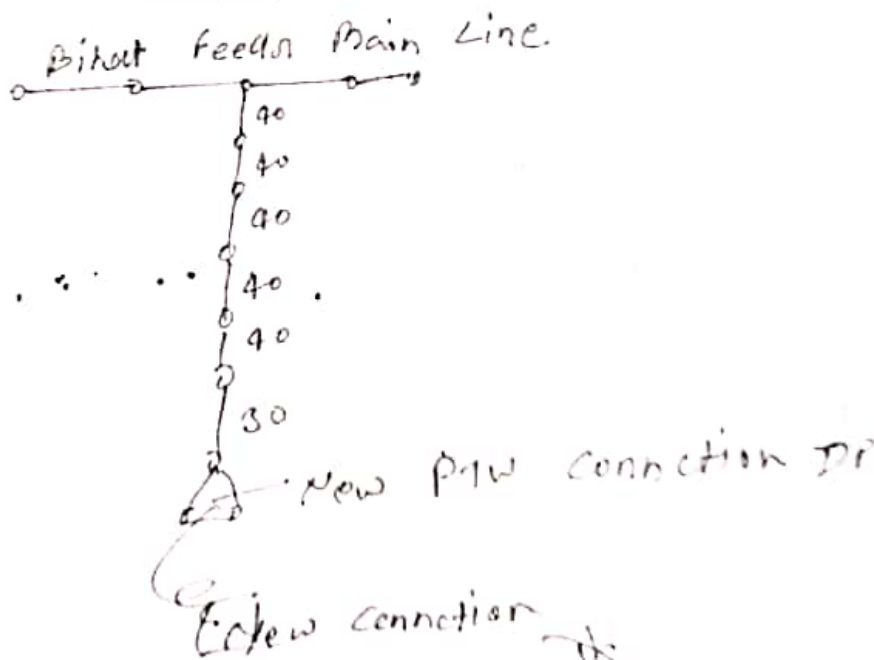 Bihat Feeder Main Line.
40
40
40
40
40
30
New P4W connction DP
connction